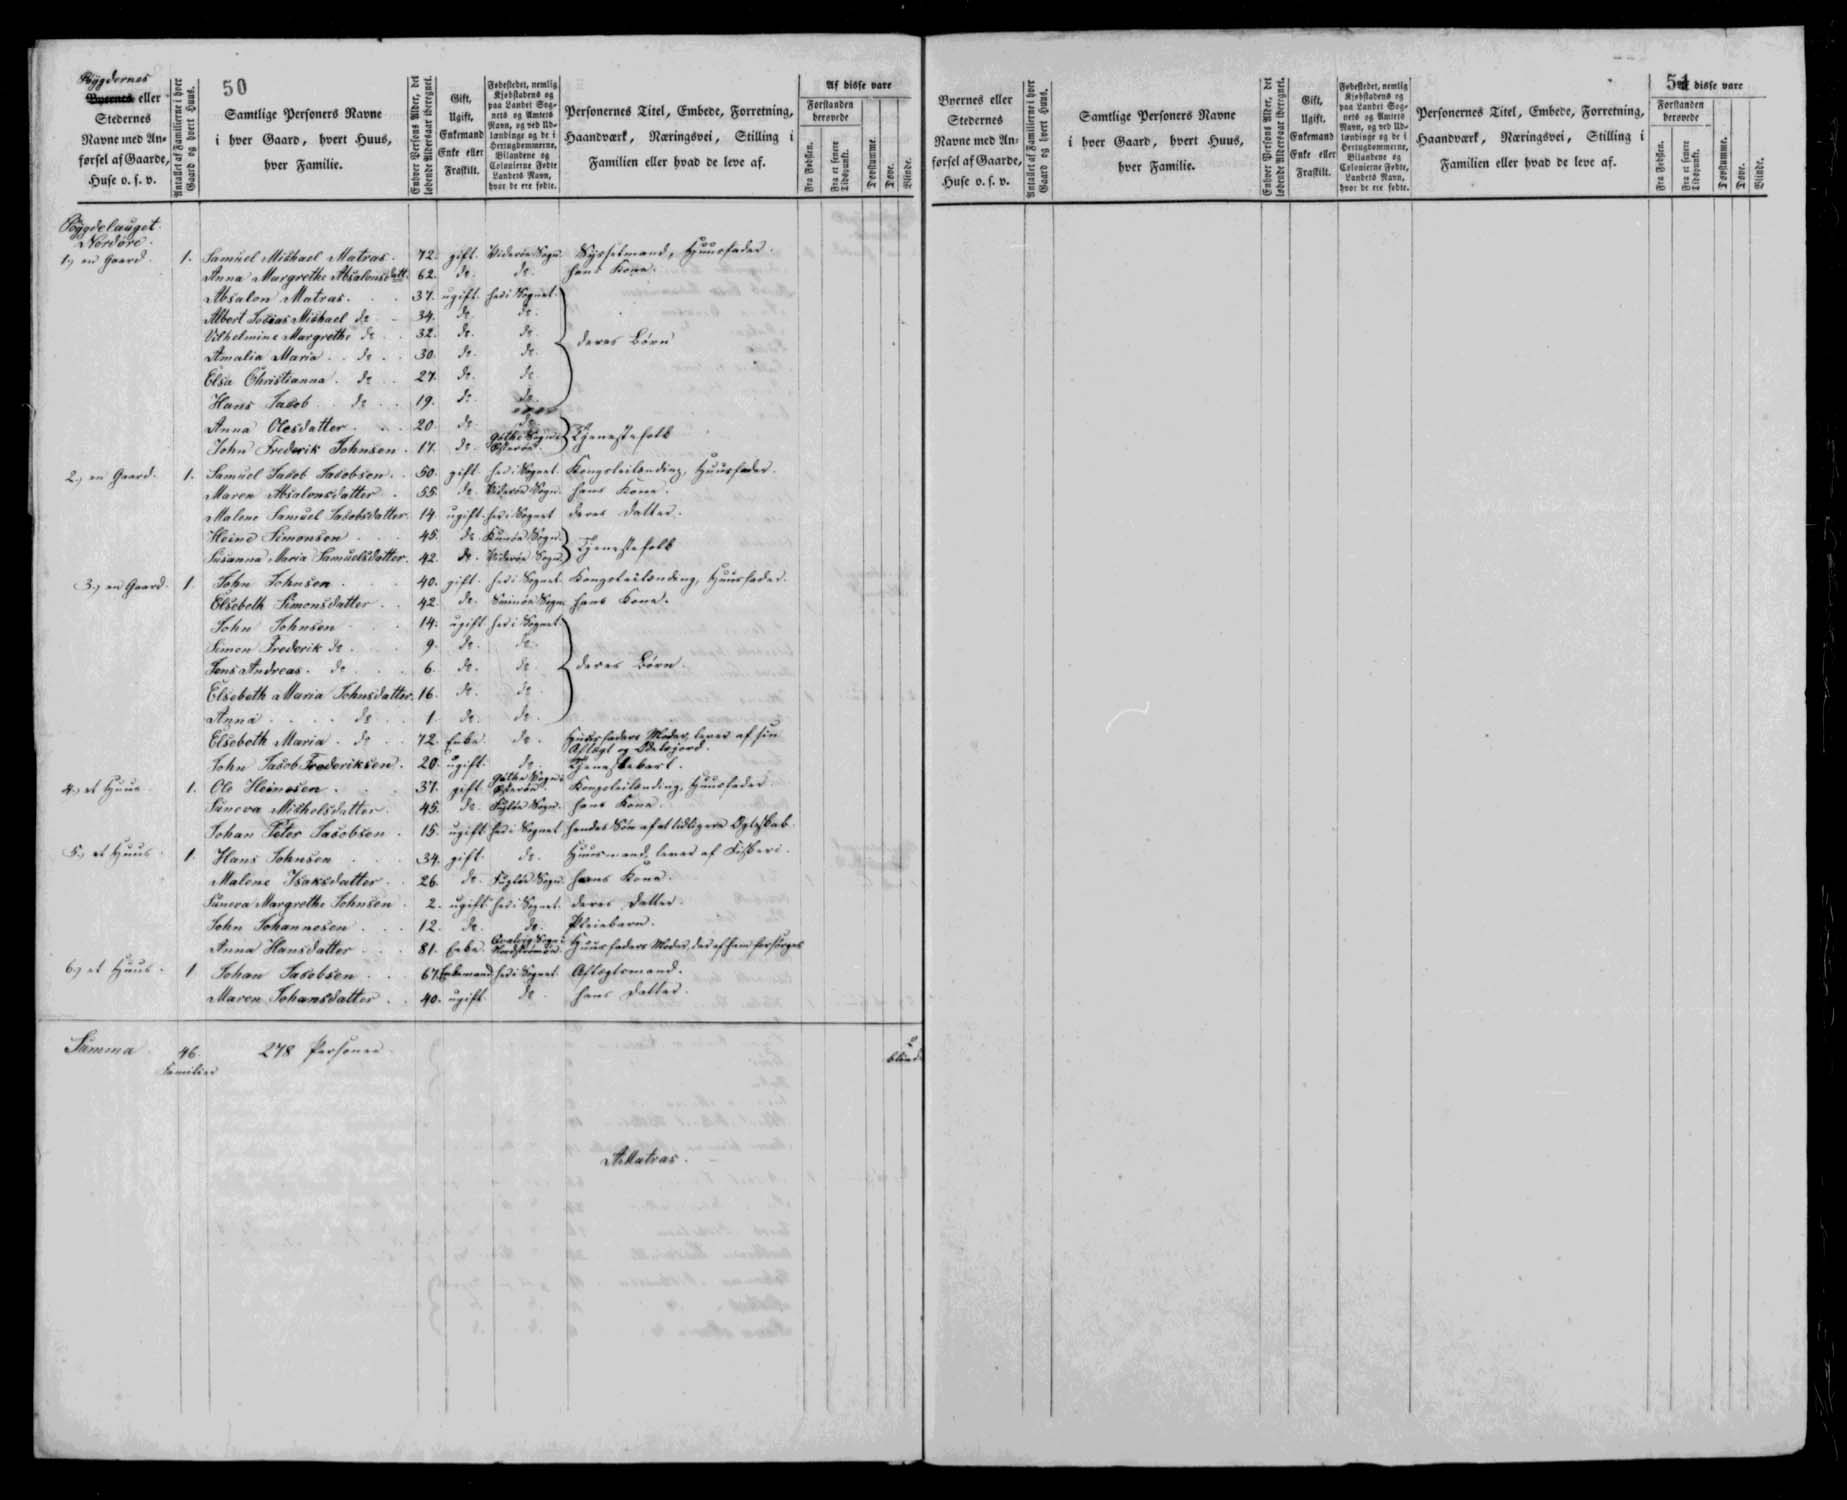 50
Bygdernes
Byernes eller
Stedernes
Navne med An-
førsel af Gaarde,
Huse o. s. v.
Antallet af Familierne i hver
Gaard og hvert Huus.
Samtlige Personers Navne
i hver Gaard, hvert Huus,
hver Familie.
Enhver Persons Alder, det
løbende Aldersaar iberegnet.
Gift,
Ugift,
Enkemand
Enke eller
Fraskilt.
Fødestedet, nemlig
Kjøbstadens og
paa Landet Sog-
nets og Amtets
Navn, og ved Ud-
lændinge og de i
Hertugdømmerne,
Bilandene og
Colonierne Fødte
Landets Navn,
hvor de ere fødte.
Personernes Titel, Embede, Forretning,
Haandværk, Næringsvei, Stilling i
Familien eller hvad de leve af.
Af disse vare
Forstanden
berøvede
Fra Fødslen.
Fra et senere
Tidspunkt.
Døvstumme.
Døve.
Blinde.
Bygdelauget
Nordøre.
1.) en Gaard. 1. Samuel Michael Matras. 72. gift. Viderøe Sogn. Sysselmand, Huusfader.
Anna Margrethe Absalonsdatt. 62. do. do. hans Kone.
Absalon Matras. 37. ugift. her i Sognet.
Albert Tobias Michael do 34. do. do.
Vilhelmine Margrethe do 32. do. do. deres Børn
Amalia Maria do. 30. do. do.
Elsa Christianna. do 27. do. do.
Hans Jacob do 19. do. do.
Anna Olesdatter. 20. do. do.
John Frederik Johnsen. 17. do. Gøthe Sogn Østerøe. Tjenestefolk
2.) en Gaard. 1. Samuel Jacob Jacobsen. 50. gift. her i Sognet. Kongsleilænding, Huusfader.
Maren Absalonsdatter. 55. do. Viderøe Sogn. hans Kone.
Malene Samuel Jacobsdatter. 14. ugift. her i Sognet deres Datter.
Heine Simonsen 45. do. Kunøe Sogn.
Susanna Maria Samuelsdatter. 42. do. Viderøe Sogn. Tjenestefolk
3.) en Gaard. 1. John Johnsen. 40. gift. her i Sognet. Kongsleilænding, Huusfader.
Elsebeth Simonsdatter. 42. do. Svinøe Sogn. hans Kone.
John Johnsen 14. ugift. her i Sognet.
Simon Frederik do. 9. do. do.
Jens Andreas. do. 6. do. do. deres Børn.
Elsebeth Maria Johnsdatter. 16. do. do.
Anna do 1. do. do.
Elsebeth Maria. do. 72. Enke. do. Huusfaders Moder, lever af sin
Aftægt og Odelsjord.
John Jacob Frederiksen. 20. ugift. do. Tjenestekarl.
4.) et Huus. 1. Ole Heinesen. 37. gift. Gøthe Sogn Østerøe. Kongsleilænding, Huusfader.
Suneva Michelsdatter. 45. do. Fugløe Sogn. hans Kone.
Johan Peter Jacobsen. 15. ugift. her i Sognet. hendes Søn af et tidligere Ægteskab.
5.) et Huus. 1. Hans Johnsen 34. gift. do. Huusmand, lever af Fiskeri.
Malene Isaksdatter. 26. do. Fugløe Sogn. hans Kone.
Suneva Margrethe Johnsen. 2. ugift. her i Sognet. deres Datter.
John Johannesen. 12. do. do. Pleiebarn.
Anna Hansdatter. 81. Enke. Qvalvig Sogn Nordstrømøe. Huusfaders Moder, der af ham forsørges
6.) et Huus. 1 Johan Jacobsen. 67. Enkemand her i Sognet. Aftægtsmand.
Maren Johansdatter. 40. ugift. do. hans Datter.
Summa. 46. 278 Personer. 2
Familier blind
AMatras.
51
Byernes eller
Stedernes
Navne med An-
førsel af Gaarde,
Huse o. s. v.
Antallet af Familierne i hver
Gaard og hvert Huus.
Samtlige Personers Navne
i hver Gaard, hvert Huus,
hver Familie.
Enhver Persons Alder, det
løbende Aldersaar iberegnet.
Gift,
Ugift,
Enkemand
Enke eller
Fraskilt.
Fødestedet, nemlig
Kjøbstadens og
paa Landet Sog-
nets og Amtets
Navn, og ved Ud-
lændinge og de i
Hertugdømmerne,
Bilandene og
Colonierne Fødte,
Landets Navn,
hvor de ere fødte.
Personernes Titel, Embede, Forretning,
Haandværk, Næringsvei, Stilling i
Familien eller hvad de leve af.
Af disse vare
Forstanden
berøvede
Fra Fødslen.
Fra et senere
Tidspunkt.
Døvstumme.
Døve.
Blinde.